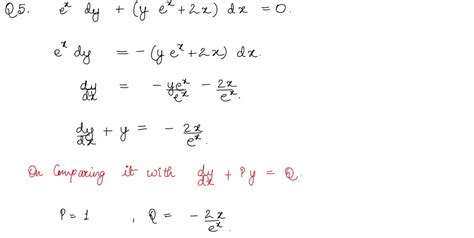 Q5. e^x dy + (y e^x + 2x) dx = 0.
e^x dy = - (y e^x + 2x) dx.
dy/dx = - ye^x/e^x - 2x/e^x.
dy/dx + y = - 2x/e^x.
On Comparing it with dy/dx + Py = Q.
P = 1 , Q = - 2x/e^x.